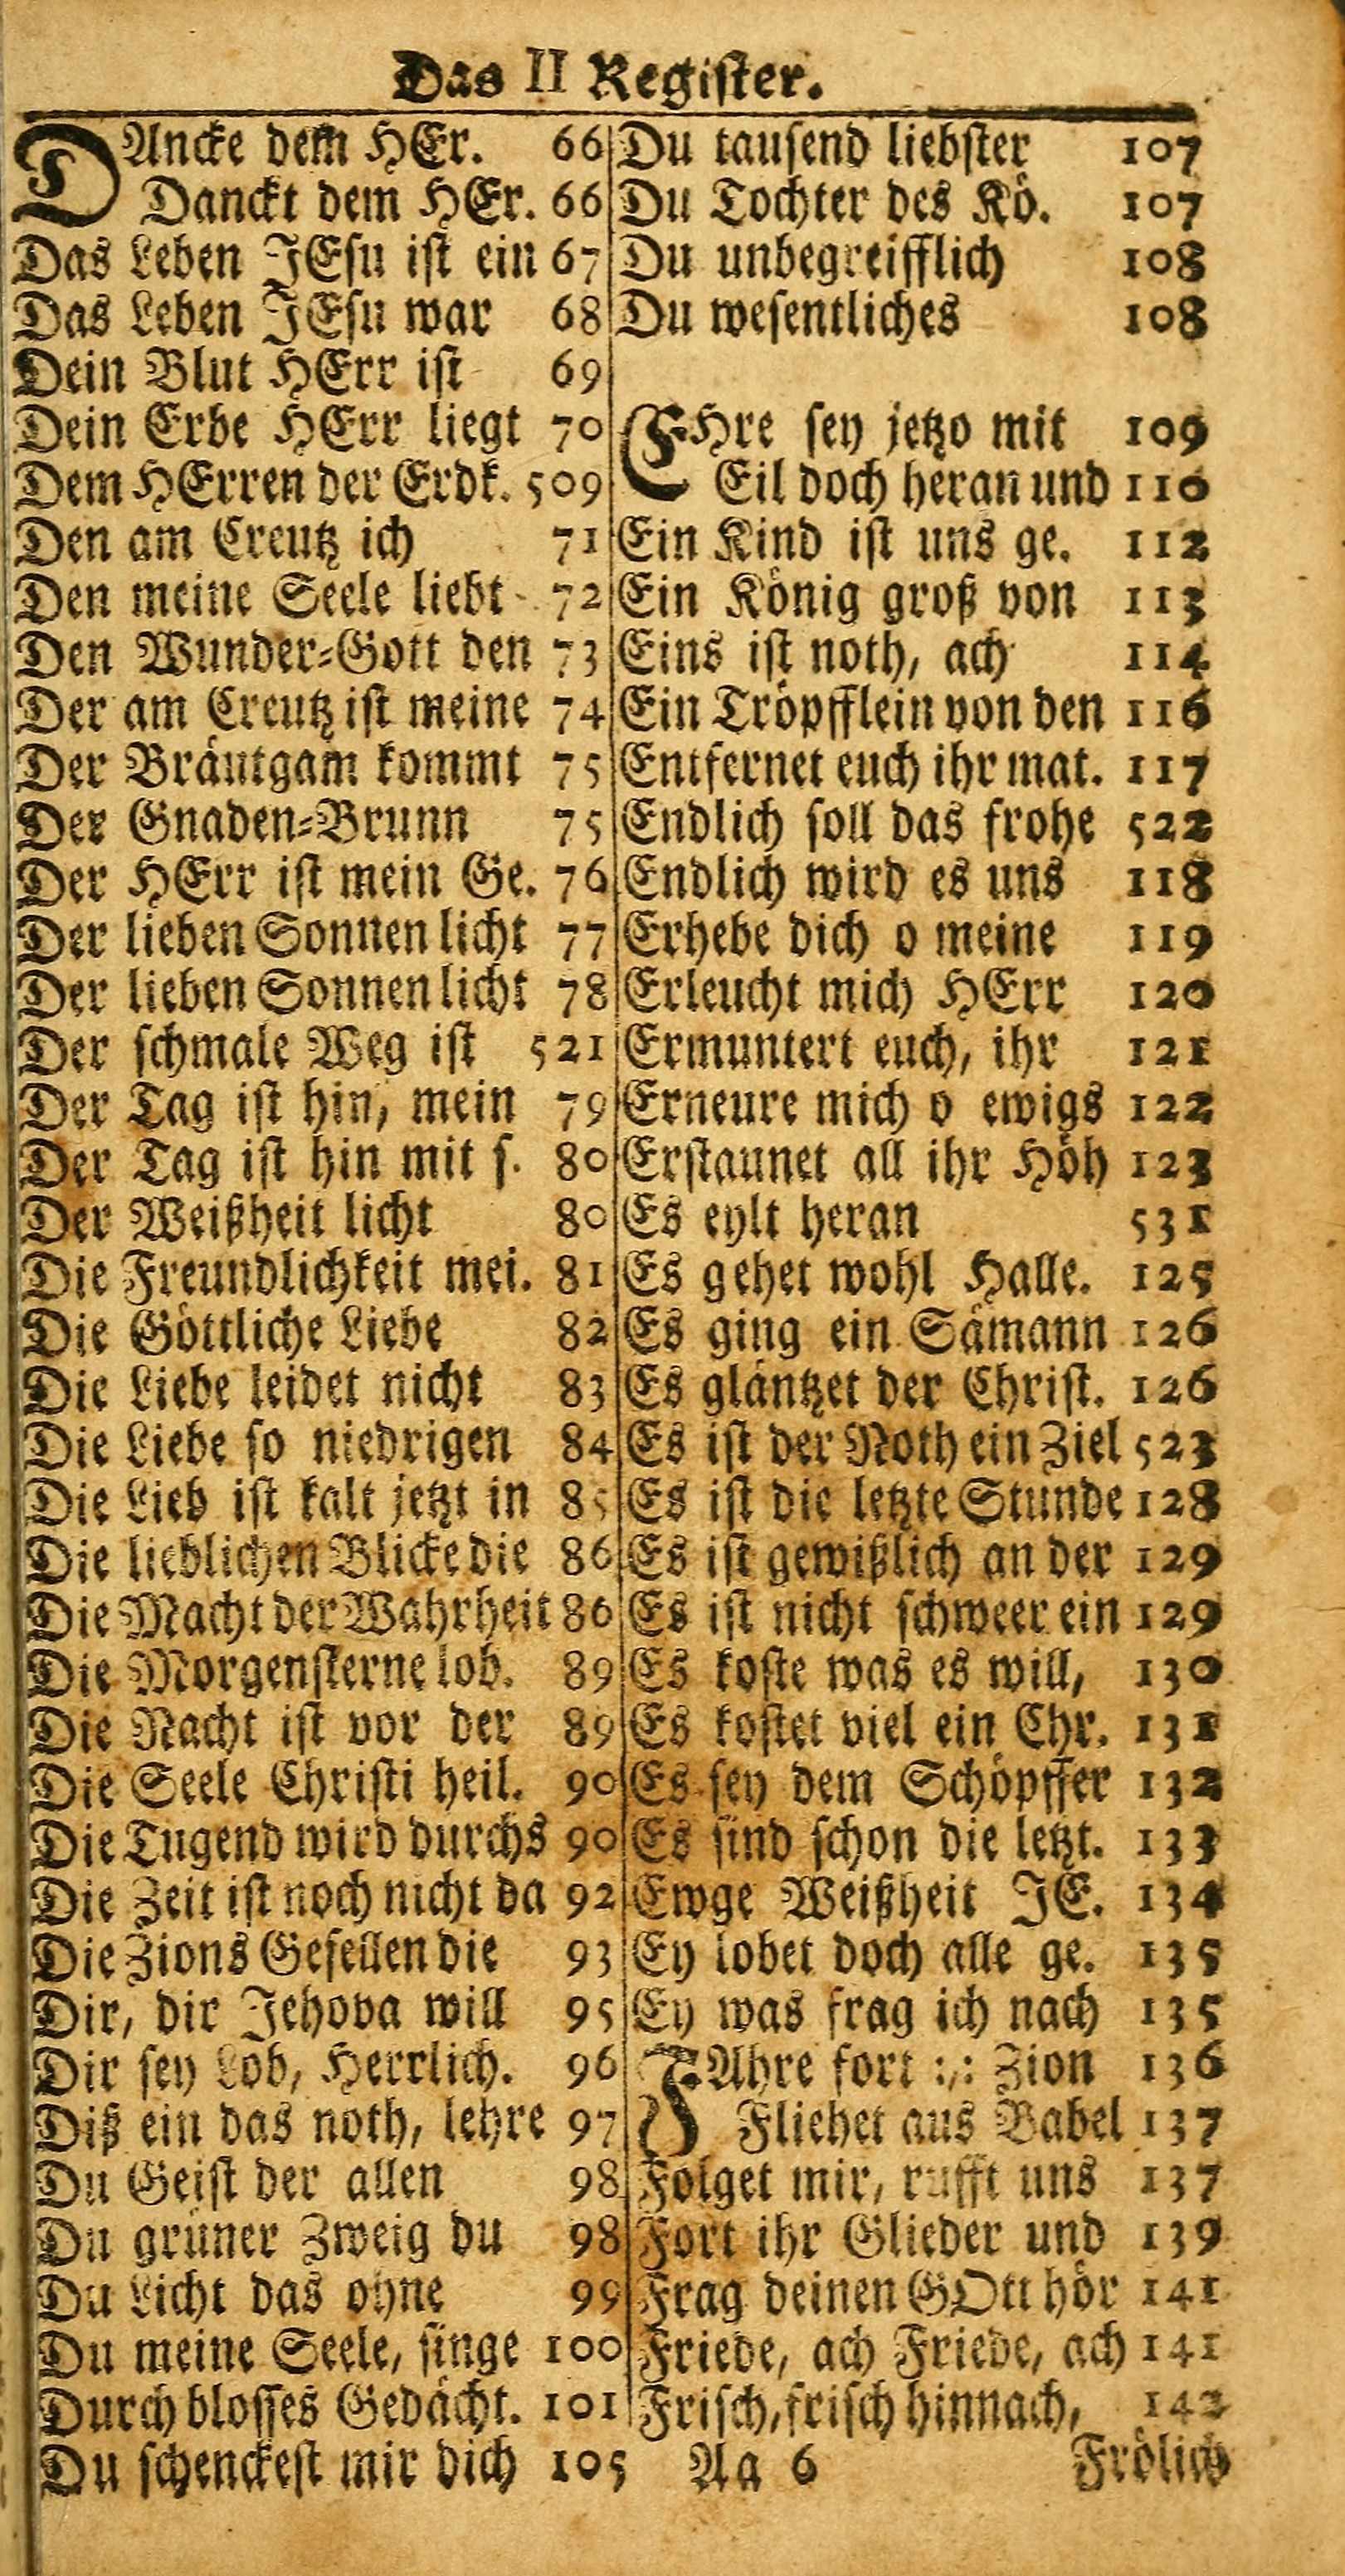 Das II Register.
DAncke dem HEr. 66
Danckt dem HEr. 66
Das Leben JEsu ist ein 67
Das Leben JEsu war 68
Dein Blut HErr ist 69
Dein Erbe HErr liegt 70
Dem HErren der Erdk. 509
Den am Creutz ich 71
Den meine Seele liebt 72
Den Wunder=Gott den 73
Der am Creutz ist meine 74
Der Bräutgam kommt 75
Der Gnaden=Brunn 75
Der HErr ist mein Ge. 76
Der lieben Sonnen licht 77
Der lieben Sonnen licht 78
Der schmale Weg ist 521
Der Tag ist hin, mein 79
Der Tag ist hin mit s. 80
Der Weißheit licht 80
Die Freundlichkeit mei. 81
Die Göttliche Liebe 82
Die Liebe leidet nicht 83
Die Liebe so niedrigen 84
Die Lieb ist kalt jetzt in 85
Die lieblichen Blicke die 86
Die Macht der Wahrheit 86
Die Morgensterne lob. 89
Die Nacht ist vor der 89
Die Seele Christi heil. 90
Die Tugend wird durchs 90
Die Zeit ist noch nicht da 92
Die Zions Gesellen die 93
Dir, dir Jehova will 95
Dir sey Lob, Herrlich. 96
Diß ein das noth, lehre 97
Du Geist der allen 98
Du grüner Zweig du 98
Du Licht das ohne 99
Du meine Seele, singe 100
Durch blosses Gedächt. 101
Du schenckest mir dich 105
Du tausend liebster 107
Du Tochter des Kö. 107
Du unbegreifflich 108
Du wesentliches 108
EHre sey jetzo mit 109
Eil doch heran und 110
Ein Kind ist uns ge. 112
Ein König groß von 113
Eins ist noth, ach 114
Ein Tröpfflein von den 116
Entfernet euch ihr mat. 117
Endlich soll das frohe 522
Endlich wird es uns 118
Erhebe dich o meine 119
Erleucht mich HErr 120
Ermuntert euch, ihr 121
Erneure mich o ewigs 122
Erstaunet all ihr Höh 123
Es eylt heran 531
Es gehet wohl Halle. 125
Es ging ein Sämann 126
Es gläntzet der Christ. 126
Es ist der Noth ein Ziel 523
Es ist die letzte Stunde 128
Es ist gewißlich an der 129
Es ist nicht schweer ein 129
Es koste was es will, 130
Es kostet viel ein Chr. 131
Es sey dem Schöpffer 132
Es sind schon die letzt. 133
Ewge Weißheit JE. 134
Ey lobet doch alle ge. 135
Ey was frag ich nach 135
FAhre fort :,: Zion 136
Fliehet aus Babel 137
Folget mir, rufft uns 137
Fort ihr Glieder und 139
Frag deinen GOtt hör 141
Friede, ach Friede, ach 141
Frisch, frisch hinnach, 142
Aa 6 Frölich